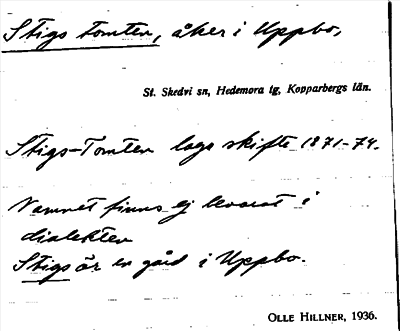 Stigs tomten, åker i Uppbo,
St. Skedvi sn, Hedemora tg, Kopparbergs län.
Stigs-Tomten laga skifte 1871-74.
Namnet finns ej bevarat i
dialekten
Stigs är en gård i Uppbo.
OLLE HILLNER, 1936.